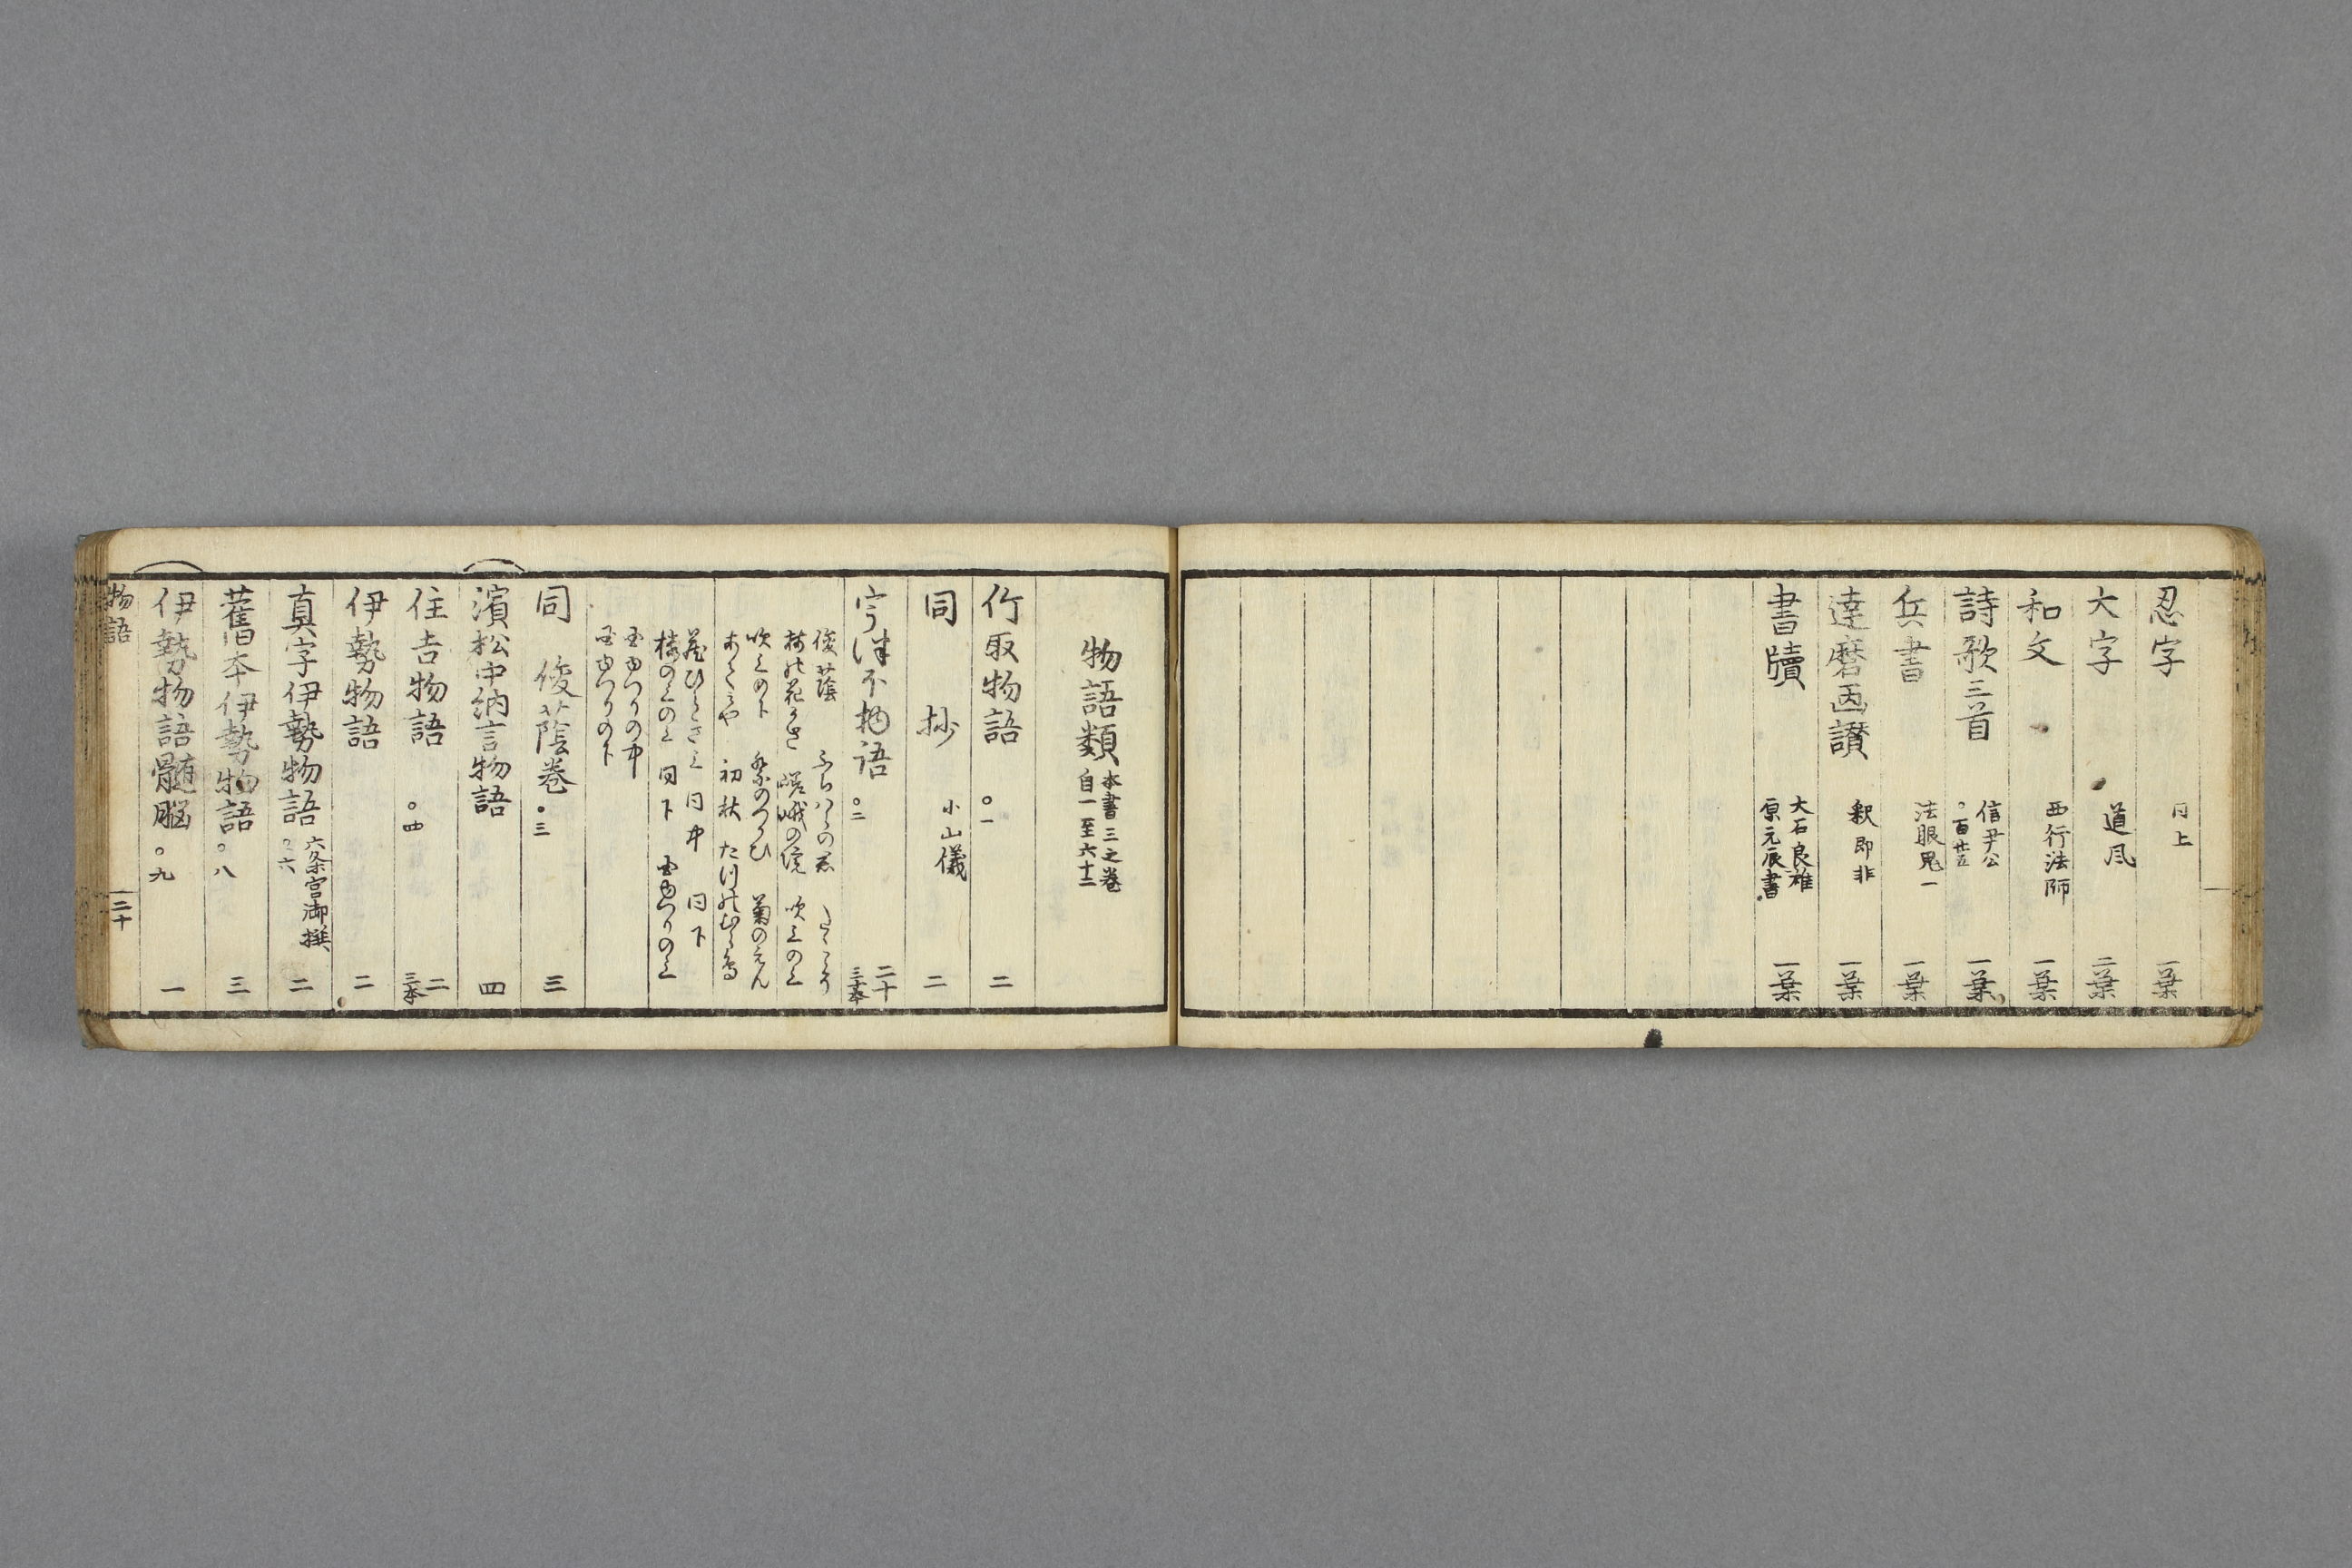 忍字 同上 一葉
大字 道風 二葉
和文 西行法師 一葉
詩歌三首 信尹公 。百廿五 一葉
兵書 法眼鬼一 一葉
達磨画讃 釈即非 一葉
書牘 大石良雄 原元辰書 一葉
物語類 本書三之巻 自一至六十二
竹取物語 。一 二
同 抄 小山儀 二
宇津保物语 。二 二十 三十本
俊蔭 ふちはらの君 たゝこそ
梅の花かさ 嵯峨の院 吹上の上
吹上の下 祭のつかひ 菊のえん
あてみや 初秋 たつのむら鳥
蔵ひらき上 同中 同下
楼の上の上 同下 国ゆつりの上
国ゆつりの中
国ゆつりの下
同 俊蔭巻 。三 三
濱松中納言物語 四
住吉物語 。四 二 三本
伊勢物語 二
真字伊勢物語 六条宮御撰 。六 二
舊本伊勢物語 。八 三
伊勢物語髄脳 。九 一
物語 二十